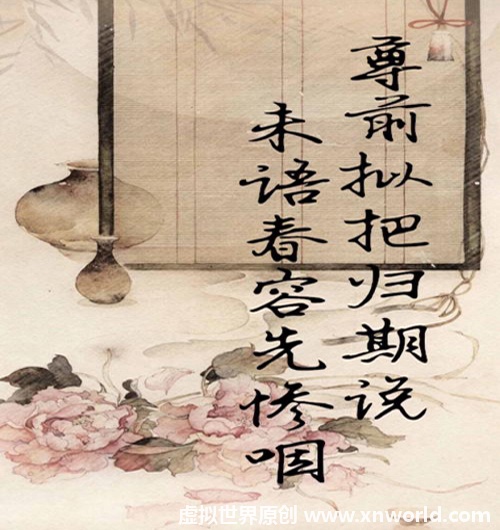 尊前拟把归期说
未语春容先惨咽
虚拟世界原创 www.xnworld.com